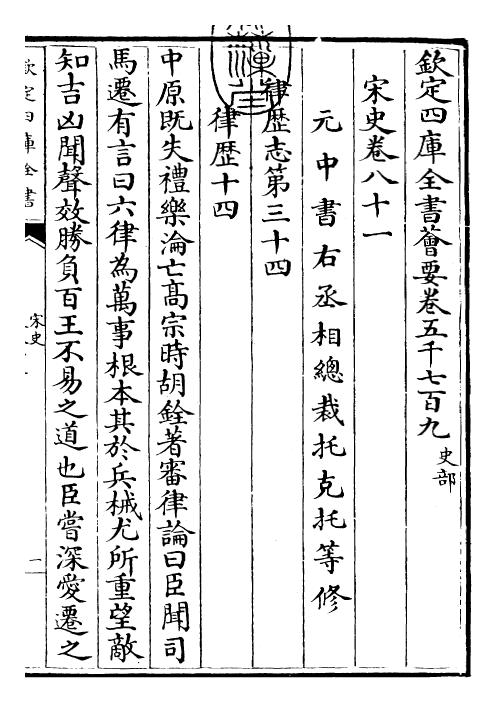 欽定四庫全書薈要卷五千七百九 史部
宋史卷八十一
元中書右丞相總裁托克托等修
律歴志第三十四
律歴十四
中原既失禮樂淪亡髙宗時胡銓著審律論曰臣聞司
馬遷有言曰六律為萬事根本其於兵械尤所重望敵
知吉凶聞聲效勝負百王不易之道也臣嘗深愛遷之
欽定四庫全書
宋史
一